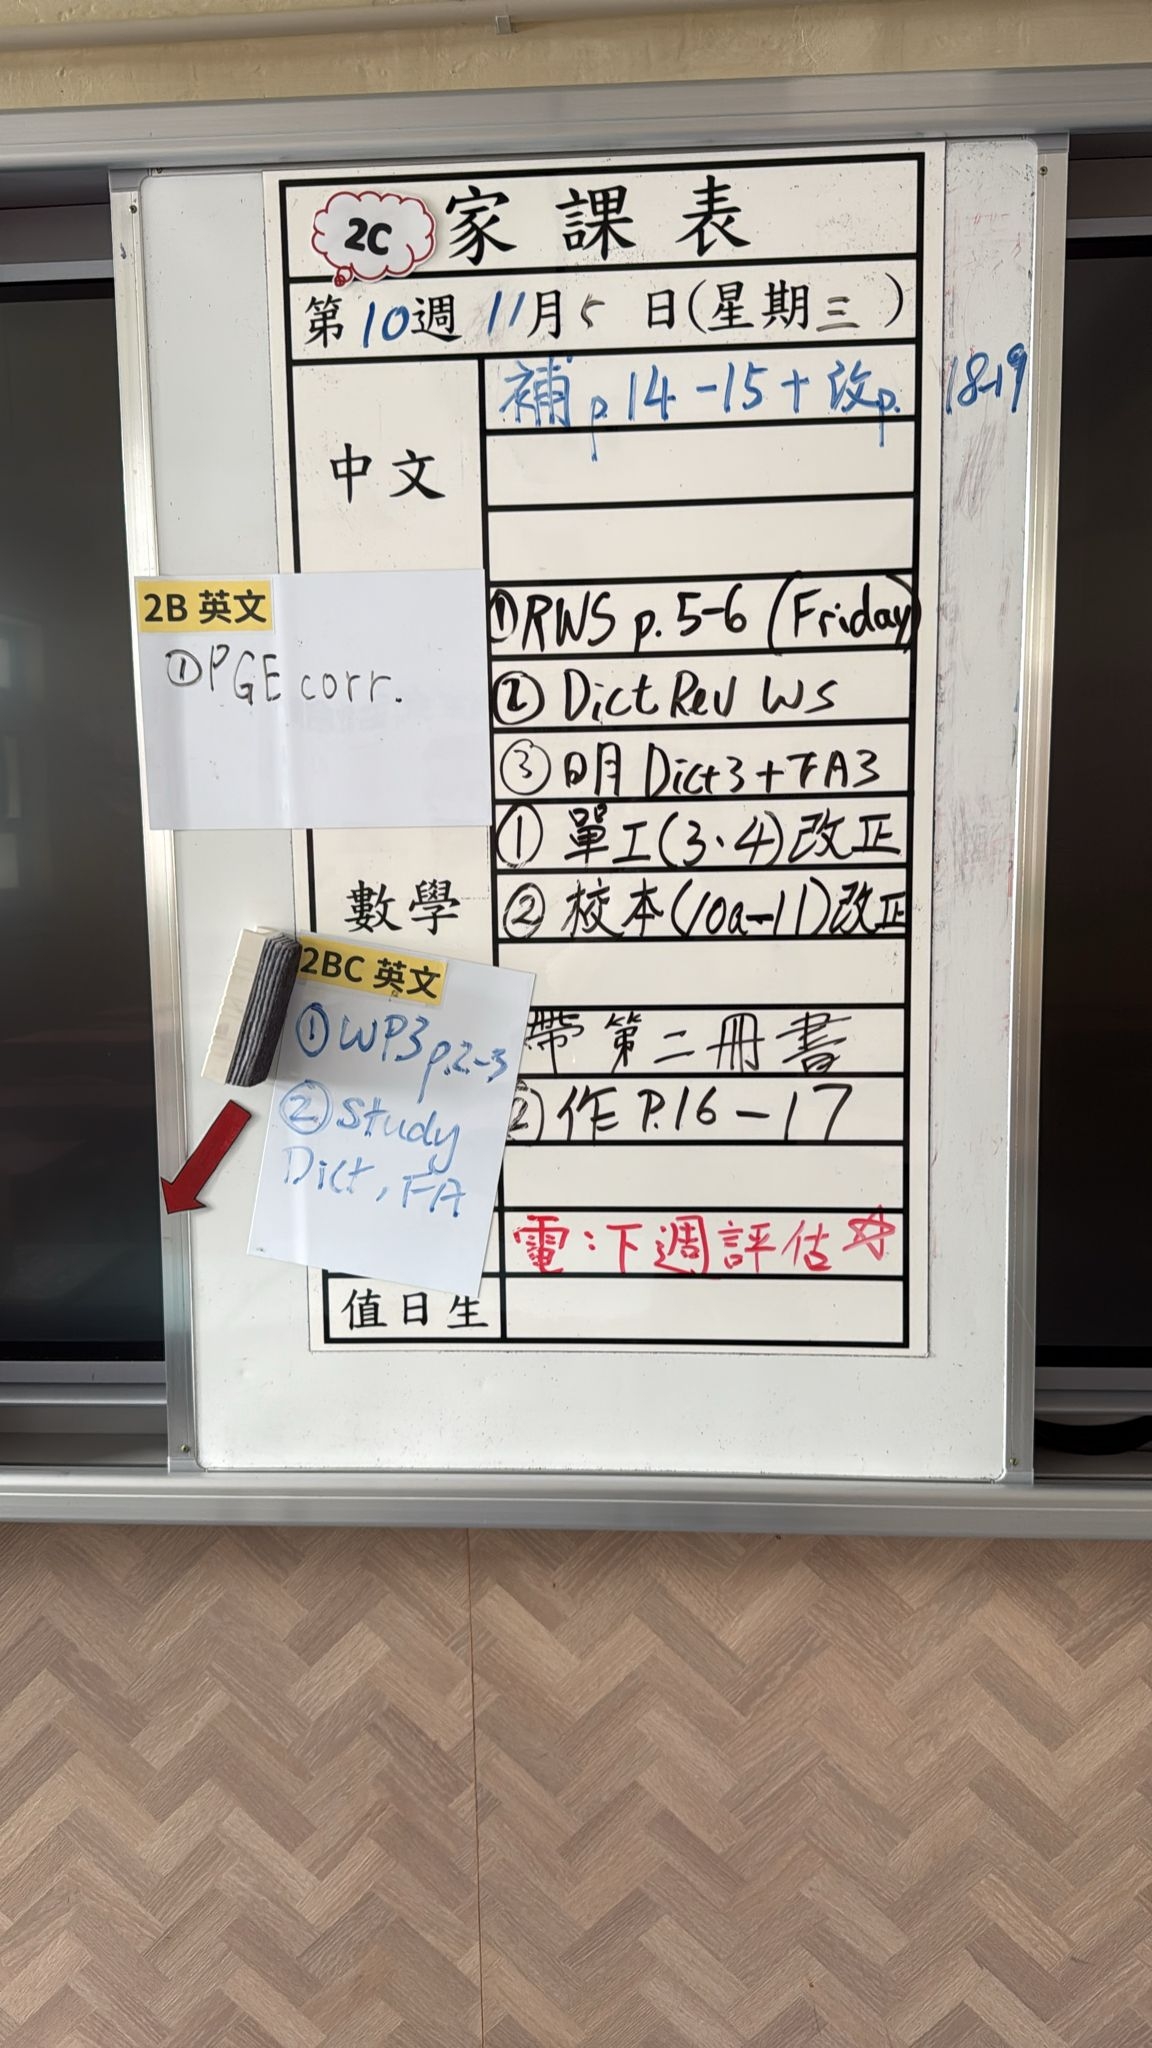 2C 家課表
第10週 11月5日(星期三)
中文
補 p.14-15 + 改 p. 18-19
2B 英文
① PGE corr.
① RWS p.5-6 (Friday)
② Dict Rev WS
③ 明 Dict 3 + FA3
數學
① 單工(3、4)改正
② 校本(10a-11)改正
2BC 英文
① WP3 p.2-3
② Study
Dict, FA
帶第二冊書
② 作 P.16-17
電:下週評估☆
值日生